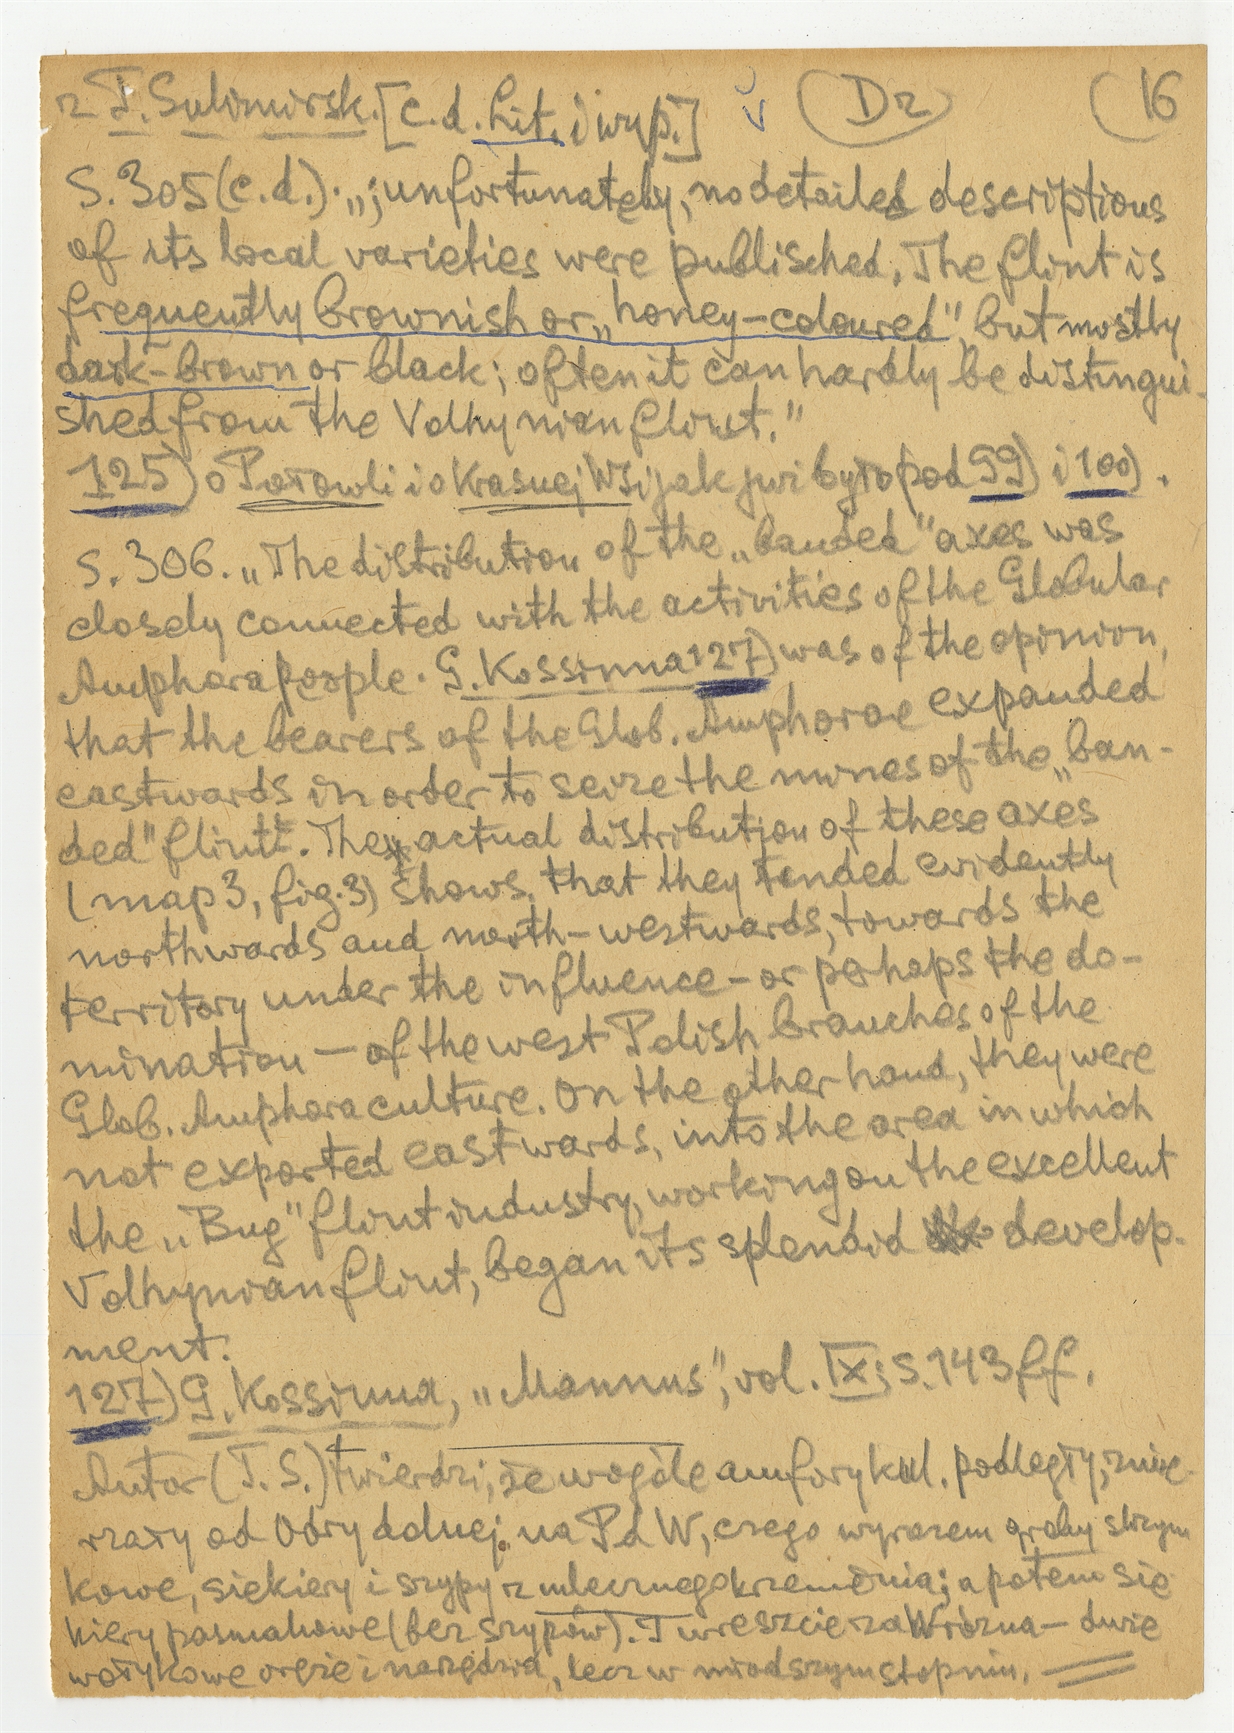 z T. Sulimirsk. [c.d. Lit. i wyp.] v (Dz) (16
S. 305 (c.d.). „; unfortunately, no detailed descriptions
of its local varieties were published. The flint is
frequently brownish or „honey-coloured", but mostly
dark-brown or black; often it can hardly be distingui-
shed from the Volhynian flint."
125) o Potowli i o Krasnej Wsi jak jwi było pod 99) i 100).
S. 306. „The distribution of the „banded" axes was
closely connected with the activities of the Globular
Amphora people. G. Kossinna 127) was of the opinion,
that the bearers of the Glob. Amphorae expanded
eastwards in order to seize the mines of the „ban-
ded" flint. The actual distribution of these axes
(map 3, fig. 3) shows, that they tended evidently
northwards and north-westwards, towards the
territory under the influence - or perhaps the do-
mination — of the west Polish branches of the
Glob. Amphora culture. On the other hand, they were
not exported eastwards, into the area in which
the „Bug" flint industry, working on the excellent
Volhynian flint, began its splendid develop-
ment.
127) G. Kossinna, „Mannus", vol. IX; S. 143 ff.
Autor (T. S.) twierdzi, że wogóle amfory kul. podległy, zmie-
rzały od Odry dolnej na Pd W, czego wyrazem groby skrzyn
kowe, siekiery i szypy z mlecznego krzemienia; a potem sie
kiery pasmakowe (bez szypów). I wreszcie za W różna — dwie
wałykowe oręże i narzędzia, lecz w młodszym stopniu.